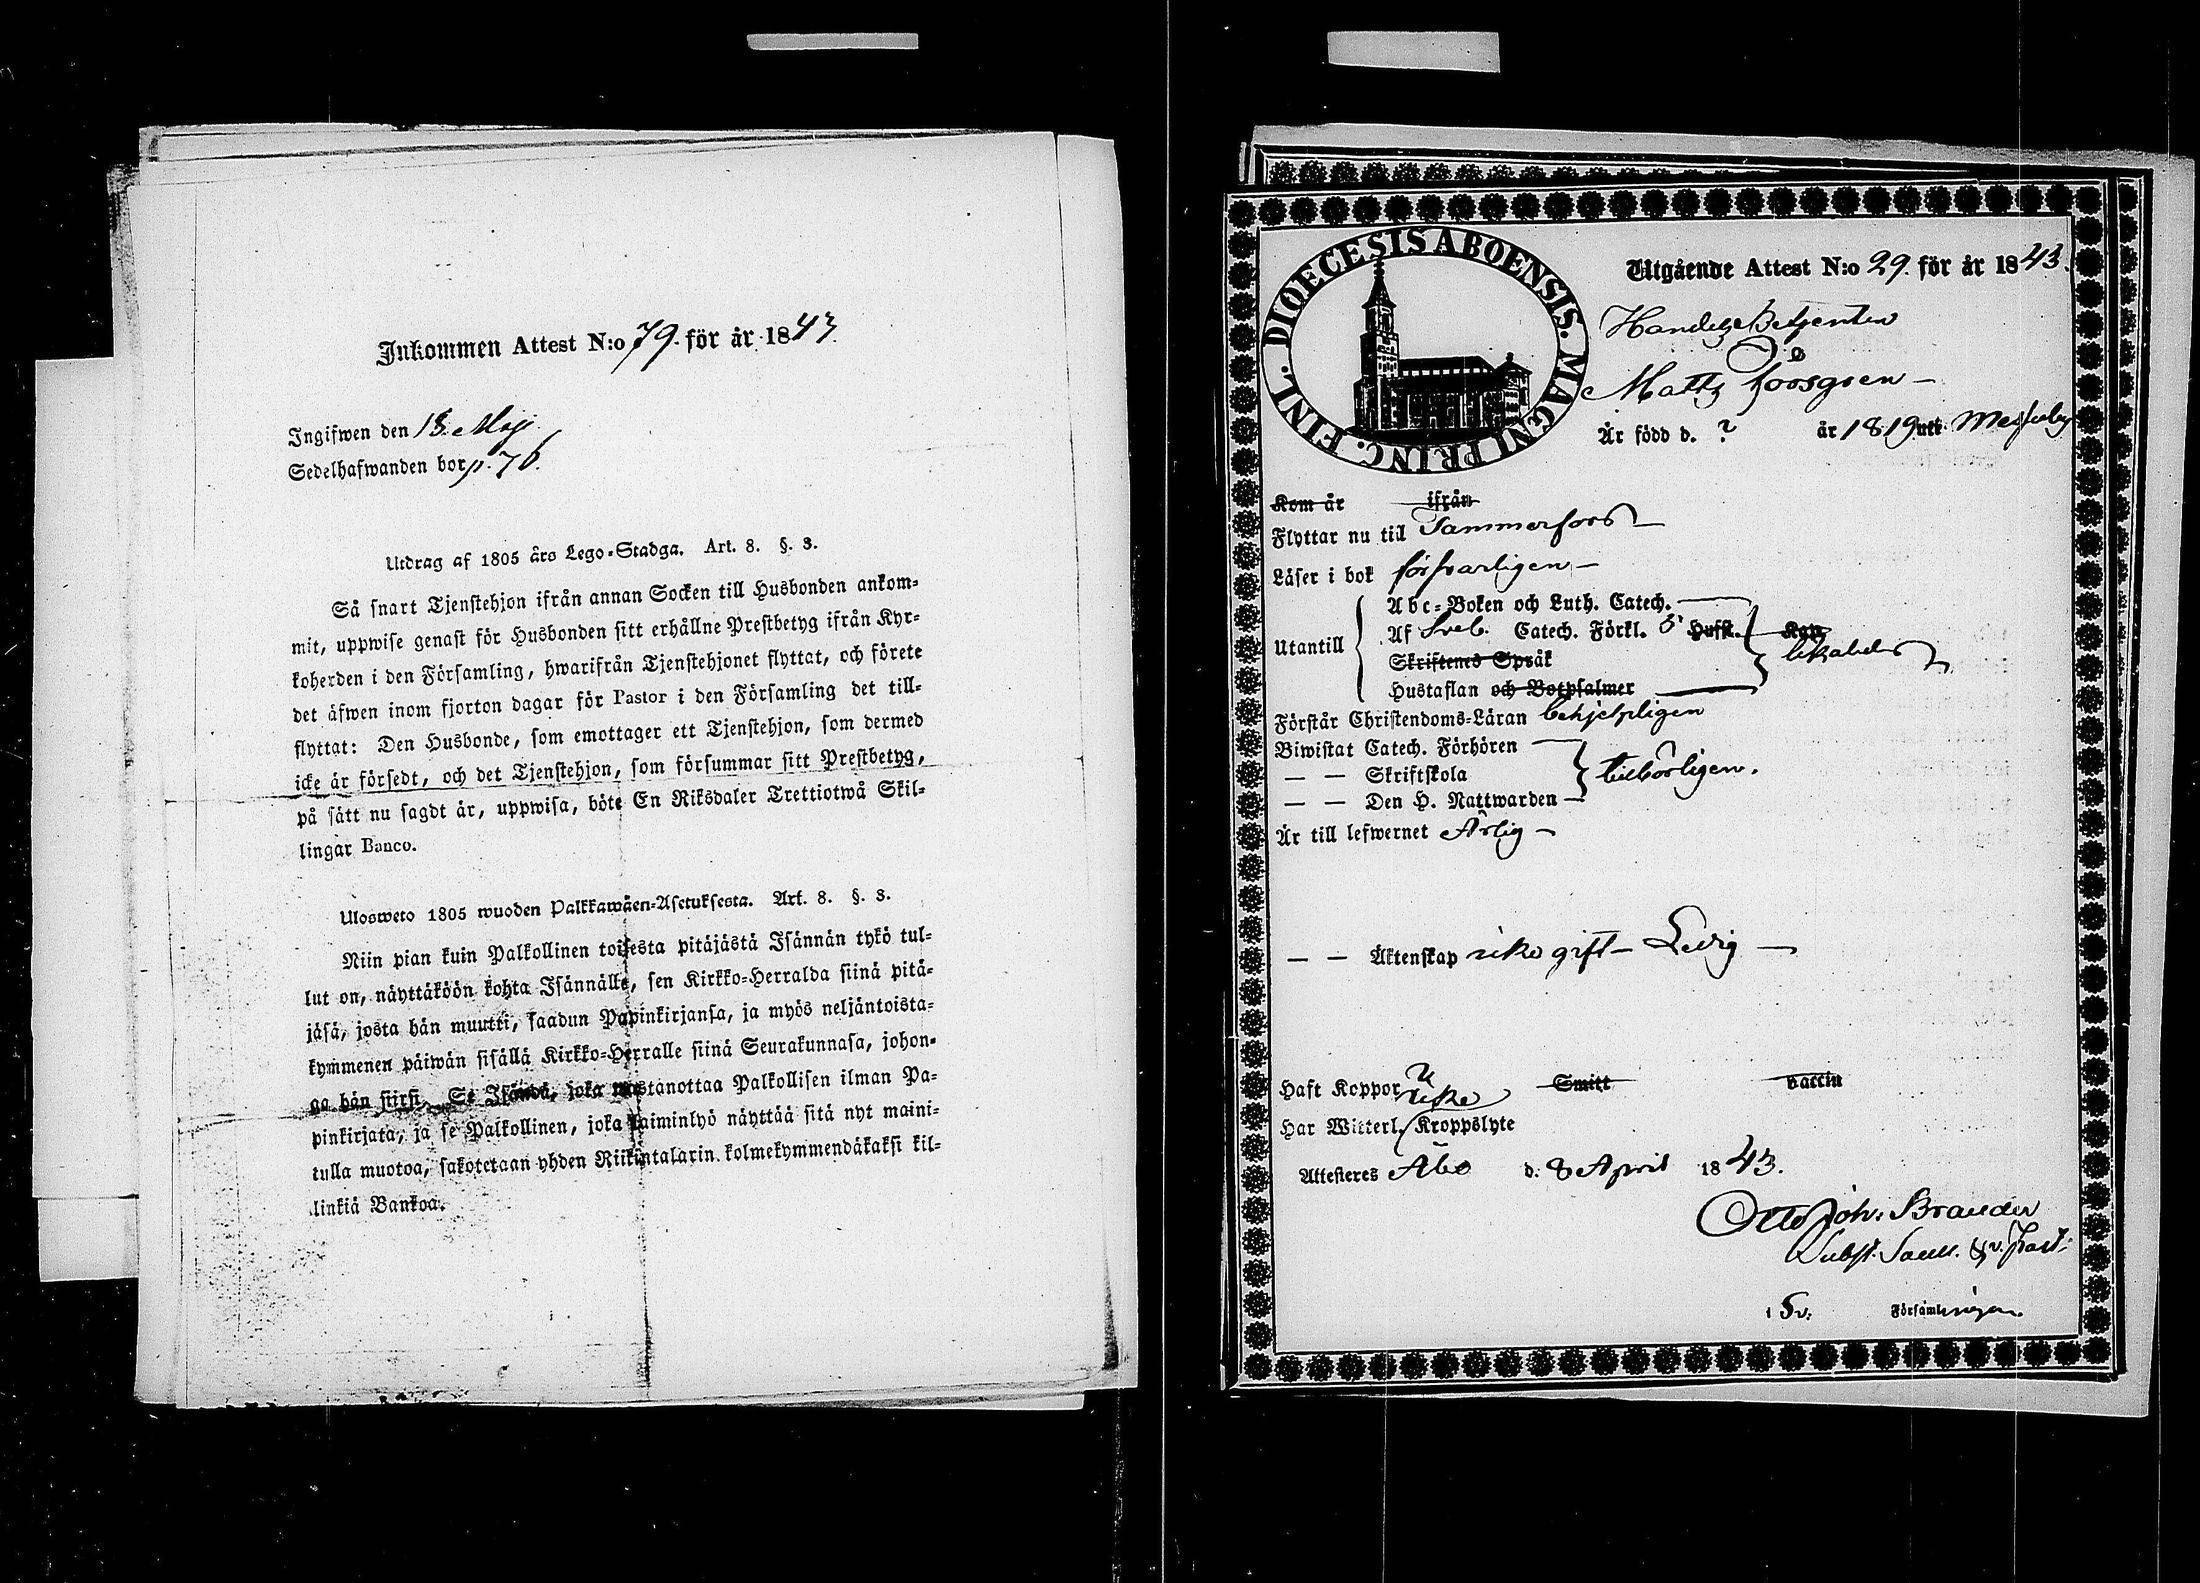 Inkommen Attest N:o 79. för år 1843.
Ingifwen den 18 Maji
Sedelhafwanden bor p. 76.
Utdrag af 1805 års Lego-Stadga. Art. 8. §. 3.
Så snart Tjenstehjon ifrån annan Socken till Husbonden ankom-
mit, uppwise genast för Husbonden sitt erhållne Prestbetyg ifrån Kyr-
koherden i den Församling, hwarifrån Tjenstehjonet flyttat, och förete
det äfwen inom fjorton dagar för Pastor i den Församling det till-
flyttat: Den Husbonde, som emottager ett Tjenstehjon, som dermed
icke är försedt, och det Tjenstehjon, som försummar sitt Prestbetyg,
på sätt nu sagdt är, uppwisa, böte En Riksdaler Trettiotwå Skil-
lingar Banco.
Ulosweto 1805 wuoden Palkkawäen-Asetuksesta. Art. 8. §. 3.
Niin pian kuin Palkollinen toisesta pitäjästä Isännän tykö tul-
lut on, näyttäköön kohta Isännälle, sen Kirkko-Herralda siinä pitä-
jäsä, josta hän muutti, saadun Papinkirjansa, ja myös neljäntoista-
kymmenen päiwän sisällä Kirkko-Herralle siinä Seurakunnasa, johon-
ga hän siirsi. Se Isändä, joka wastanottaa Palkollisen ilman Pa-
pinkirjata, ja se Palkollinen, joka laiminlyö näyttää sitä nyt maini-
tulla muotoa, sakotetaan yhden Riikintalarin kolmekymmendäkaksi kil-
linkiä Bankoa.
DIOECESIS ABOENSIS. MAGNI PRINC. FINL.
Utgående Attest N:o 29. för år 1843.
Handels Betjenten
Matts Forsgren
Är född d. ? år 1819 uti Messuby
Kom år ifrån
Flyttar nu till Tammerfors
Läser i bok försvarligen
Utantill
Abc-Boken och Luth. Catech.
Af Sveb. Catech. Förkl. 5 Hufst. Kap.
Skriftenes Språk
Hustaflan och Botpsalmer
Förstår Christendoms-Läran behjelpligen
Biwistat Catech. Förhören
— — Skriftskola tillbörligen.
— — Den H. Nattwarden
Är till lefwernet Ärlig
— — Äktenskap icke gift - Ledig
Haft Koppor Smitt vaccin
Har Witterl. Kroppslyte
Attesteres Åbo d. 8 April 1843.
Otto Joh. Brander
Subst. Sacell. & v. Past.
i Sv. Församlingen